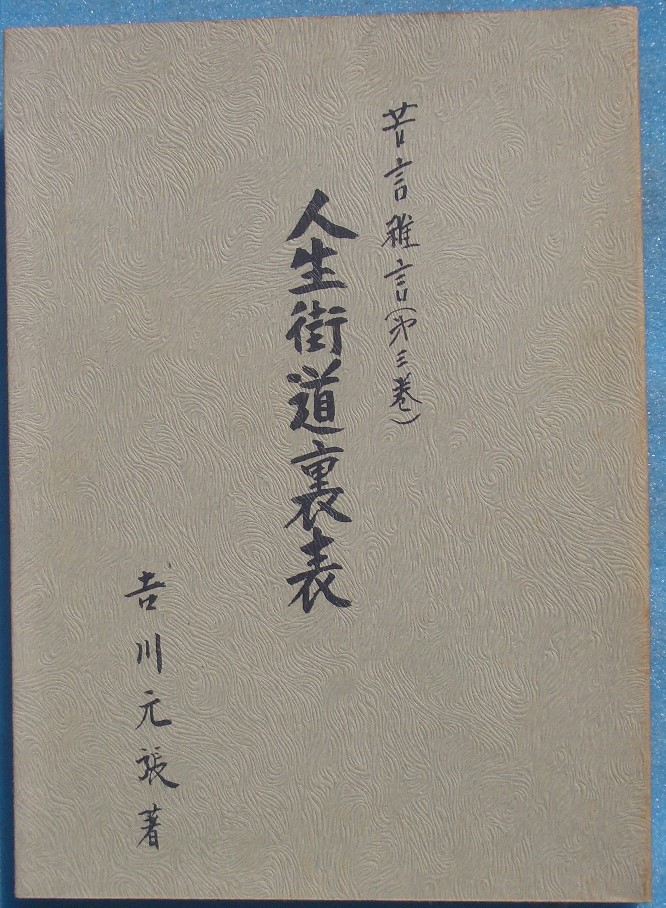 苦言雑言(第三巻)
人生街道裏表
吉川元張著